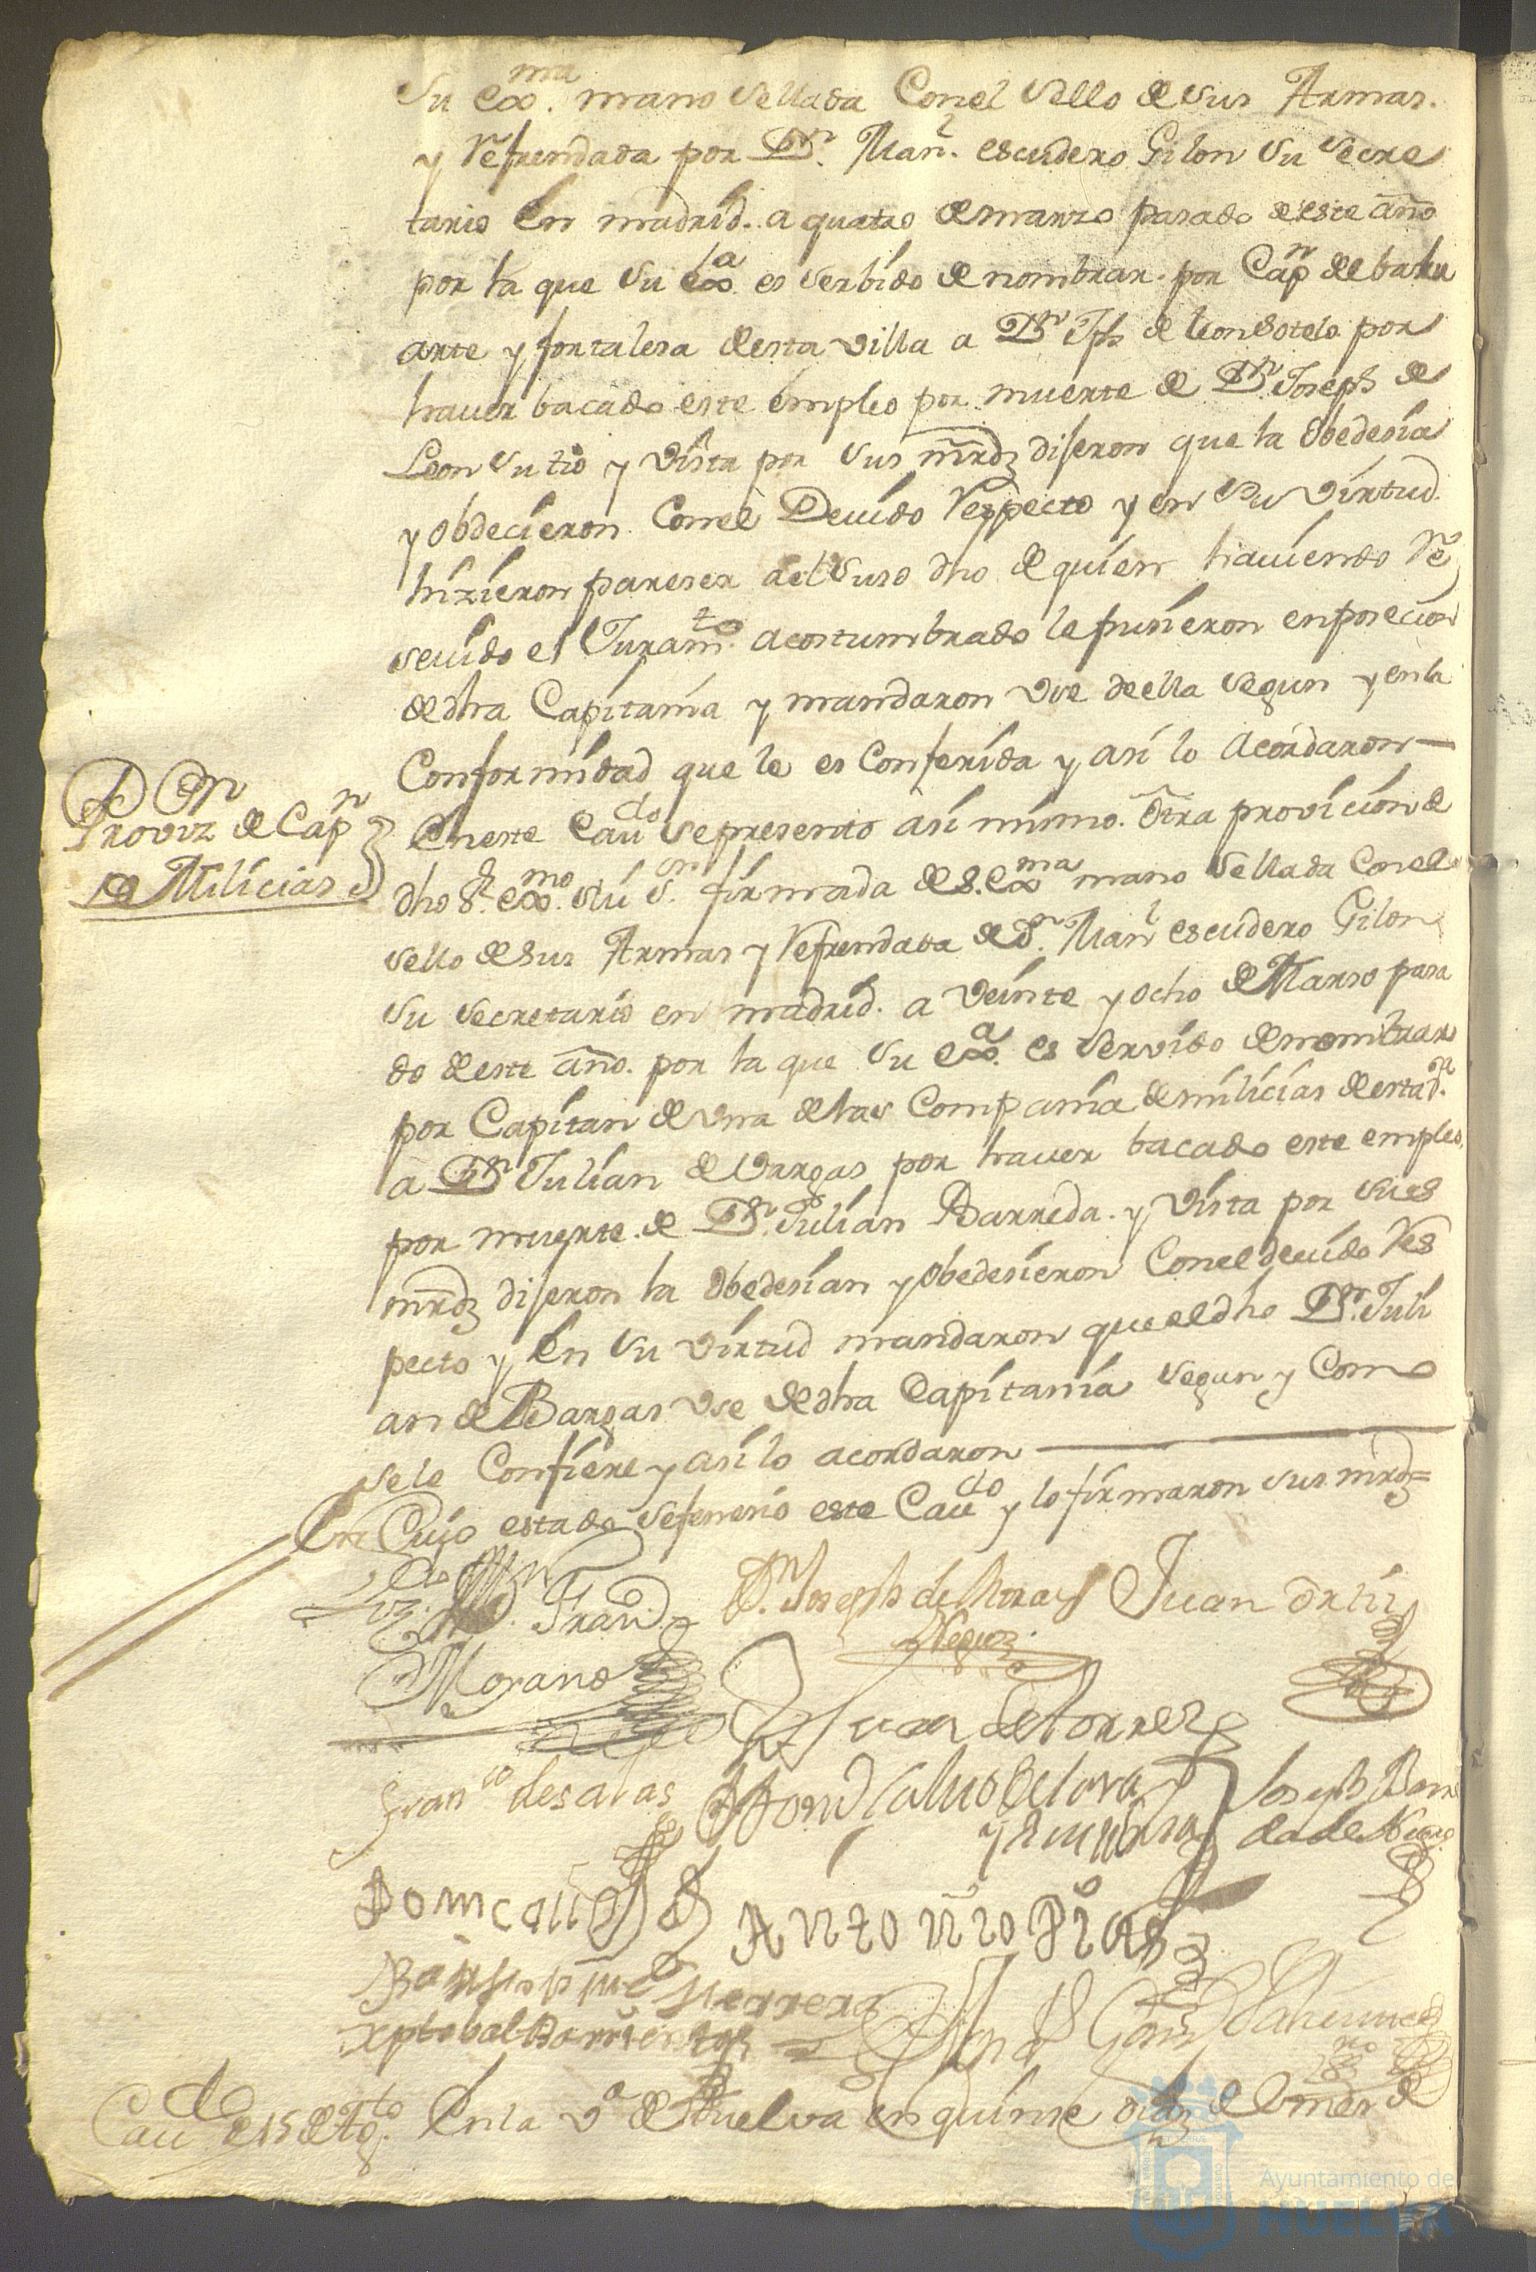 Su exma. mano Sellada Con el Sello de sus Armas.
y Refrendada por Dn. Manl. escudero Gilon Su Secre
tario en madrid. a quatro de marzo pasado de este año
por la que Su exa. es Serbido de nombrar. por Capn de balu
arte y fortalesa desta villa a Dn Jph de leon Sotelo por
haver bacado este empleo por muerte de Dn. Joseph de
Leon Su tio y Vista por Sus mrdz dijeron que la Obedesia
y Obdecieron Con el Devido Respecto y en Su Virtud
hizieron pareser a el Suso dho de quien haviendo Re
sevido el Juramto. acostumbrado le pusieron en posecion
de dha Capitania y mandaron Use de ella Segun y en la
Conformidad que le es Conferida y asi lo acordaron
Provizn de Capn
de Milicias
En este Cavdo Se presento asi mismo. Otra provicion de
dho Sr. exmo. Su Sr. firmada de S. exma mano Sellada Con el
Sello de Sus Armas y Refrendada de Dn. Manl escudero Gilon
Su Secretario en madrid. a Veinte y ocho de Marso pasa
do de este año. por la que Su exa. es Servido de nombrar
por Capitan de Una de las Compania de milicias de esta
a Dn Julian de Vargas por haver bacado este empleo
por muerte. de Dn. Julian Barreda. y Vista por Sus
mrdz dijeron la Obedesian y Obedesieron Con el devido Res
pecto y en Su Virtud mandaron que el dho Dn. Juli
an de Bargas Use de dha Capitania Segun y Como
Se le Confiere y asi lo acordaron
En Cuio estado Se fenesio este Cavdo y lo firmaron Sus mrdz=
Dn. Joseph de Mora y Juan Ortiz
Negron
Morano
Juan de torres
Franco de salas
Joseph Barre
da de
Antonio Dias
Herrera
xptobal Barrientos
Cavdo de 15 de Agto. En la Va de Huelva en quinse dias de el mes de
Ayuntamiento de
HUELVA